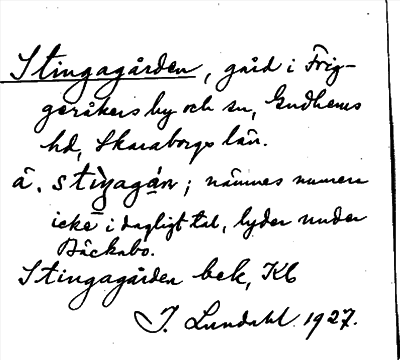 Stingagården, gård i Frig-
geråkers by och sn, Gudhems
hd, Skaraborgs län.
å. stiŋagán; nämnes numera
icke i dagligt tal, lyder under
Bäckabo.
Stingagården bek, Kb
J. Lundahl 1927.